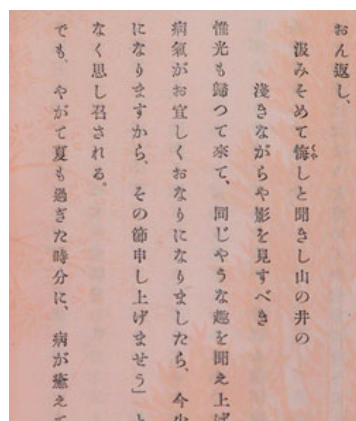 おん返し、
汲みそめて悔しと聞きし山の井の
くや
淺きながらや影を見すべき
惟光も歸つて來て、同じやうな趣を聞え上げ
病氣がお宜しくおなりになりましたら、今少
になりますから、その節申し上げませう」と
なく思し召される。
でも、やがて夏も過ぎた時分に、病が癒えて